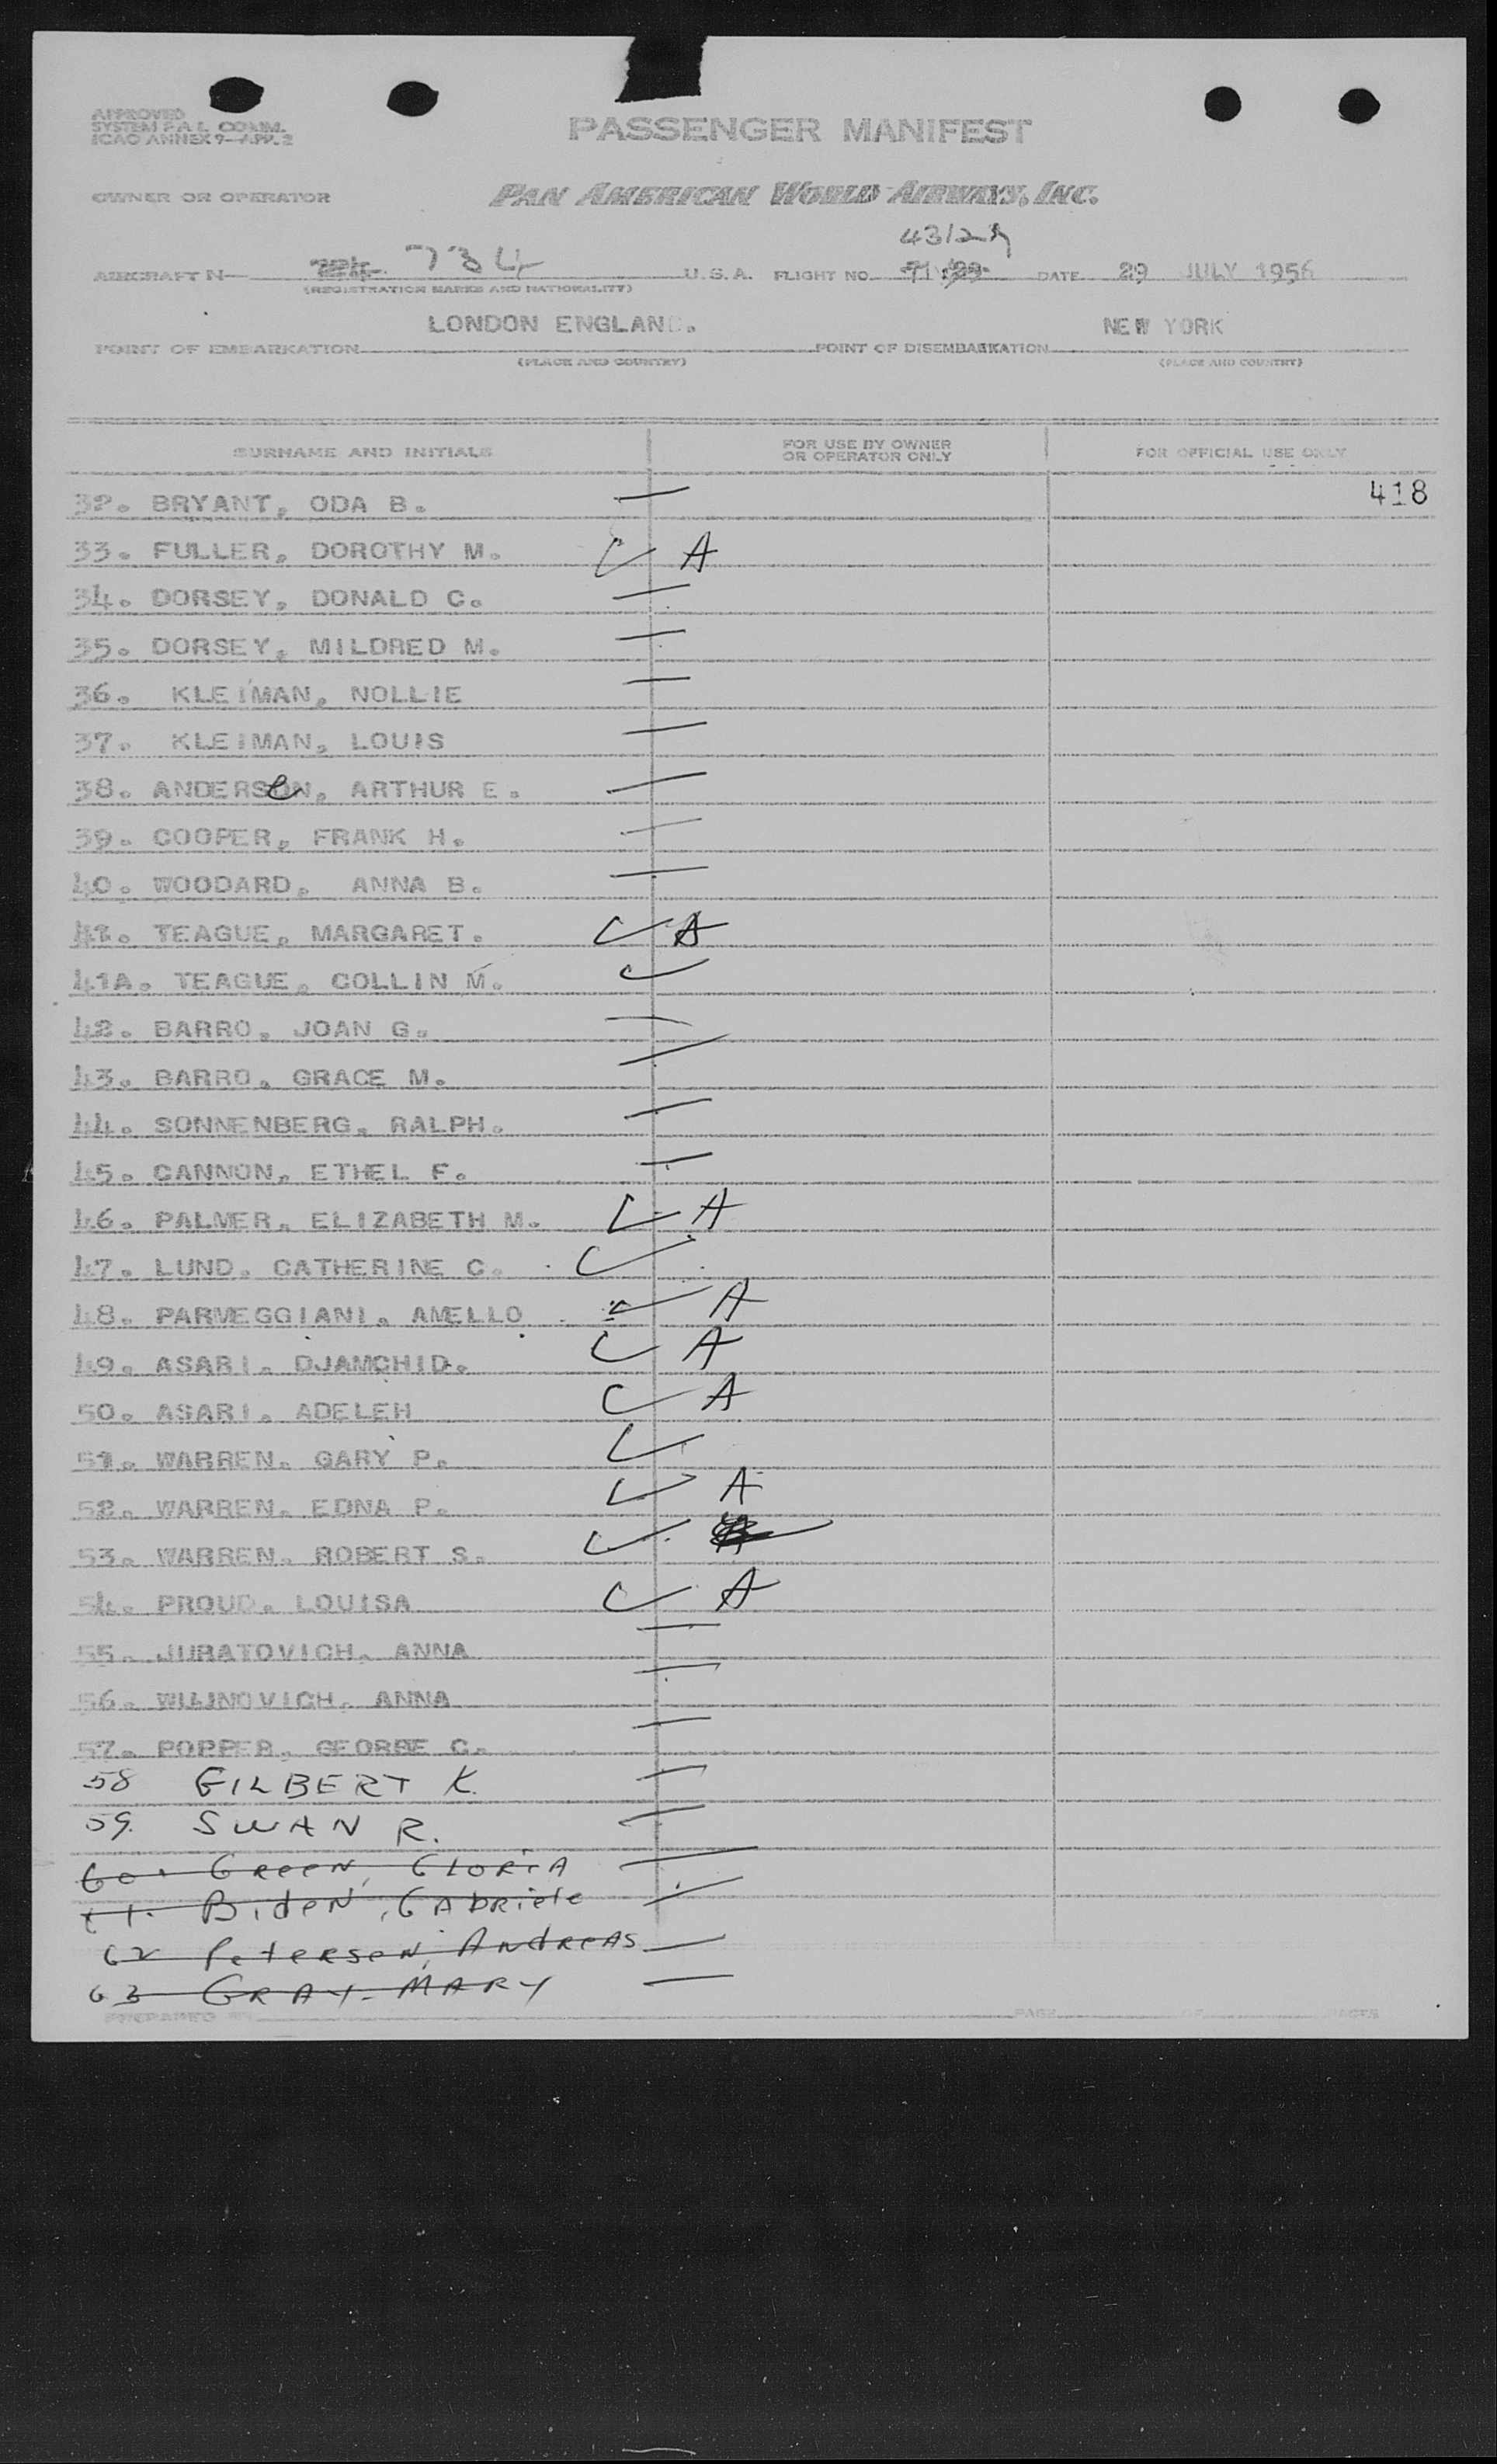 APPROVED
SYSTEM F.A.L. COMM.
ICAO ANNEX 9-APP. 2
PASSENGER MANIFEST
OWNER OR OPERATOR
PAN AMERICAN WORLD AIRWAYS, INC.
43/29
AIRCRAFT N 734 U.S.A. FLIGHT NO. DATE 29 JULY 1956
(REGISTRATION MARKS AND NATIONALITY)
LONDON ENGLAND. NEW YORK
POINT OF EMBARKATION POINT OF DISEMBARKATION
(PLACE AND COUNTRY) (PLACE AND COUNTRY)
SURNAME AND INITIALS FOR USE BY OWNER OR OPERATOR ONLY FOR OFFICIAL USE ONLY
32. BRYANT, ODA B. 418
33. FULLER, DOROTHY M. A
34. DORSEY, DONALD C.
35. DORSEY, MILDRED M.
36. KLEIMAN, NOLLIE
37. KLEIMAN, LOUIS
38. ANDERSEN, ARTHUR E.
39. COOPER, FRANK H.
40. WOODARD, ANNA B.
41. TEAGUE, MARGARET. A
41A. TEAGUE, COLLIN M.
42. BARRO, JOAN G.
43. BARRO, GRACE M.
44. SONNENBERG, RALPH.
45. CANNON, ETHEL F.
46. PALMER, ELIZABETH M. A
47. LUND, CATHERINE C.
48. PARMEGGIANI, AMELLO A
49. ASARI, DJAMCHID. A
50. ASARI, ADELEH A
51. WARREN, GARY P.
52. WARREN, EDNA P. A
53. WARREN, ROBERT S.
54. PROUD, LOUISA A
55. JURATOVICH, ANNA
56. WUJNOVICH, ANNA
57. POPPER, GEORGE C.
58 GILBERT K.
59. SWAN R.
60. GREEN, GLORIA
61. BideN, GAbRiele
62 PeteRSeN, ANdReAS
63 GRAY. MARY
PREPARED BY PAGE OF PAGES